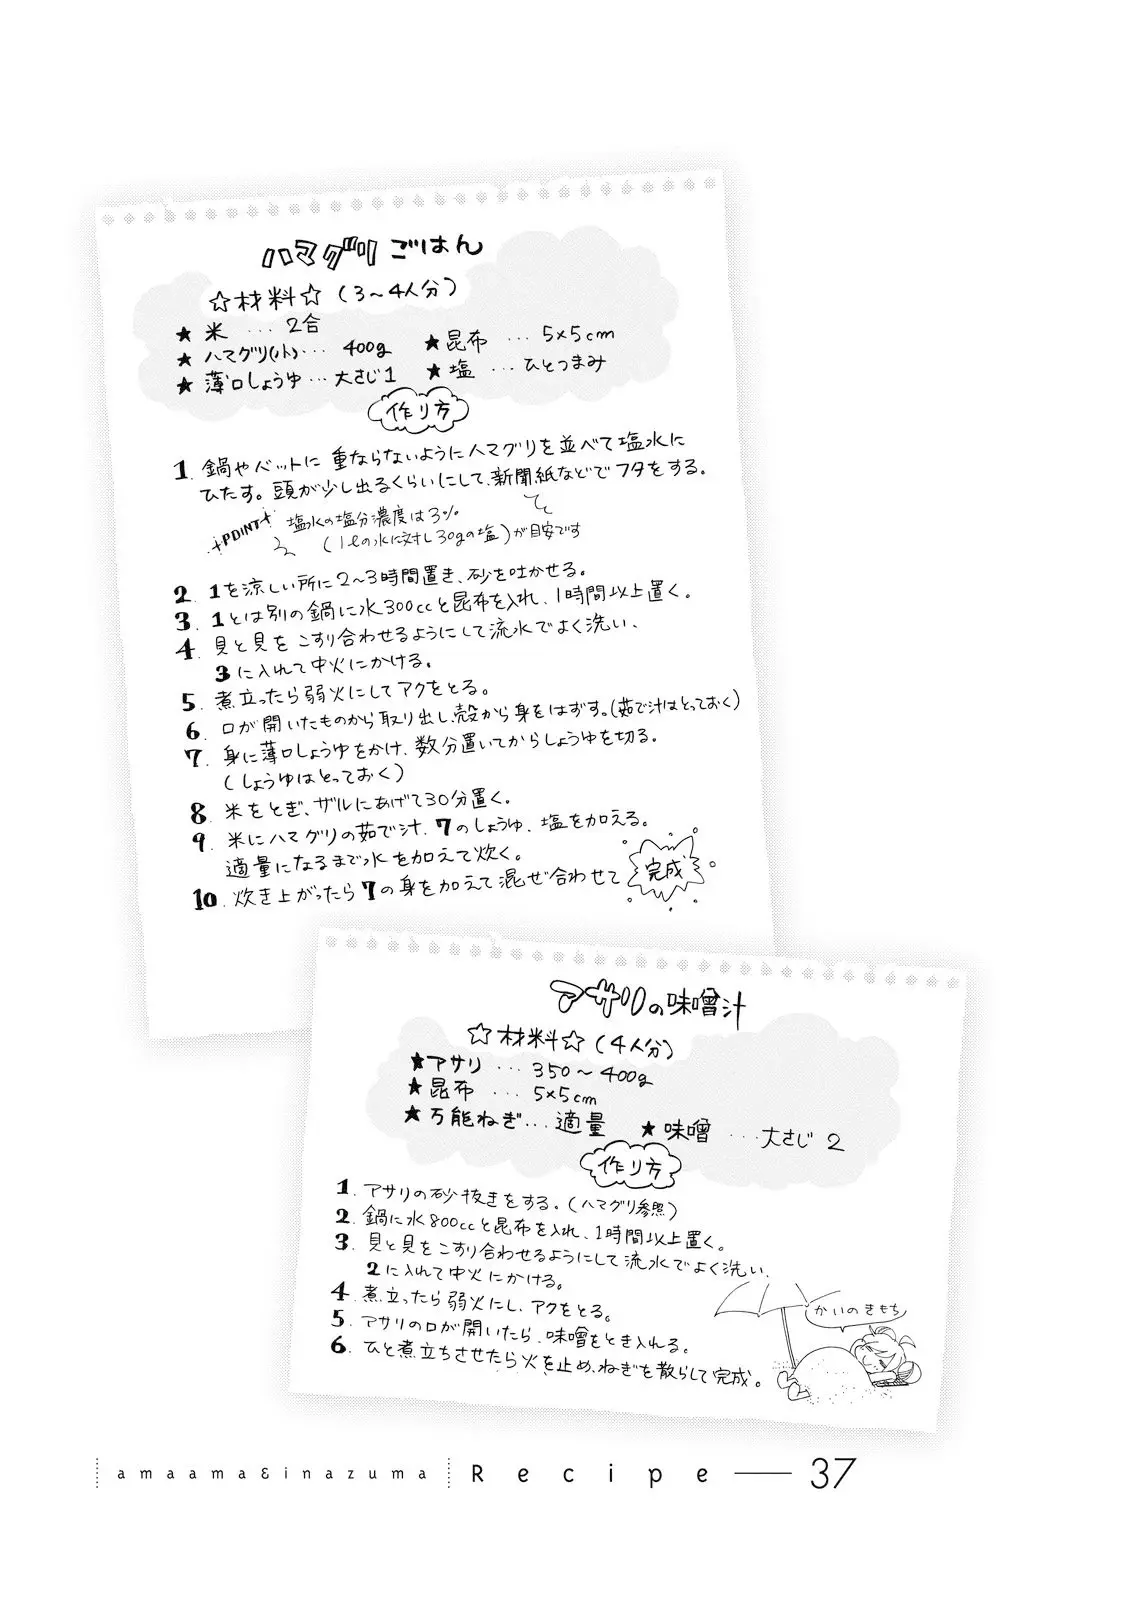 ハマグリごはん
☆材料☆(3~4人分)
★米 … 2合
★ハマグリ(小)… 400g
★薄口しょうゆ … 大さじ1
★昆布 … 5×5cm
★塩 … ひとつまみ
作り方
1. 鍋やバットに重ならないようにハマグリを並べて塩水に
ひたす。頭が少し出るくらいにして、新聞紙などでフタをする。
POINT 塩水の塩分濃度は3%
(1ℓの水に対し30gの塩)が目安です
2. 1を涼しい所に2~3時間置き、砂を吐かせる。
3. 1とは別の鍋に水300ccと昆布を入れ、1時間以上置く。
4. 貝と貝をこすり合わせるようにして流水でよく洗い、
3に入れて中火にかける。
5. 煮立ったら弱火にしてアクをとる。
6. 口が開いたものから取り出し、殻から身をはずす。(茹で汁はとっておく)
7. 身に薄口しょうゆをかけ、数分置いてからしょうゆを切る。
(しょうゆはとっておく)
8. 米をとぎ、ザルにあげて30分置く。
9. 米にハマグリの茹で汁、7のしょうゆ、塩を加える。
適量になるまで水を加えて炊く。
10. 炊き上がったら7の身を加えて混ぜ合わせて 完成
アサリの味噌汁
☆材料☆(4人分)
★アサリ … 350~400g
★昆布 … 5×5cm
★万能ねぎ … 適量 ★味噌 … 大さじ2
作り方
1. アサリの砂抜きをする。(ハマグリ参照)
2. 鍋に水800ccと昆布を入れ、1時間以上置く。
3. 貝と貝をこすり合わせるようにして流水でよく洗い、
2に入れて中火にかける。
4. 煮立ったら弱火にし、アクをとる。
5. アサリの口が開いたら、味噌をとき入れる。
6. ひと煮立ちさせたら火を止め、ねぎを散らして完成。
かいのきもち
amaama&inazuma Recipe — 37